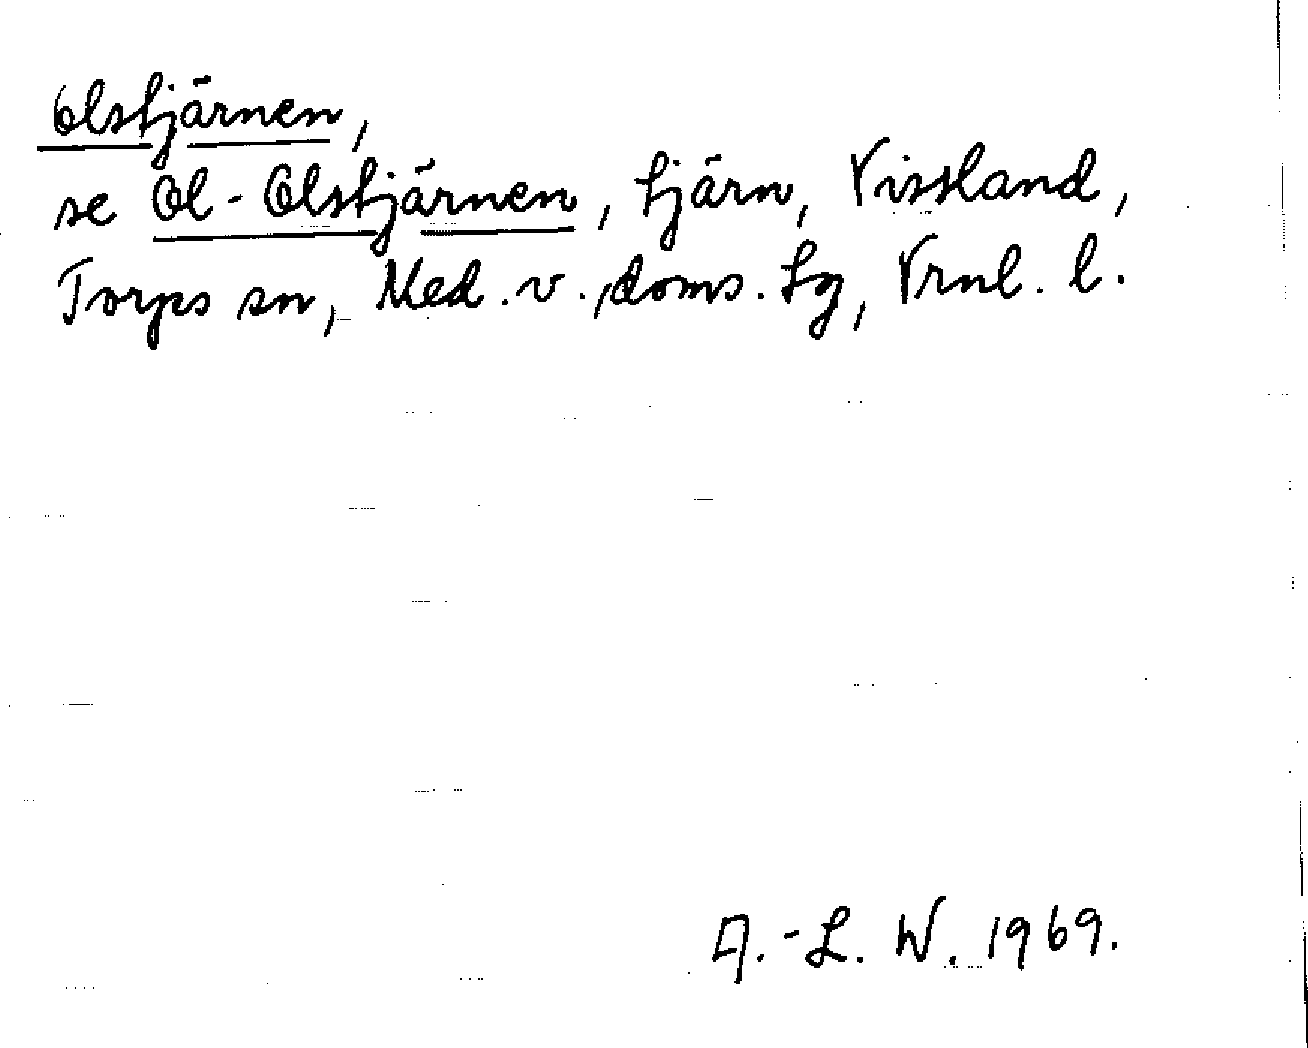 Olstjärnen,
se Ol-Olstjärnen, tjärn, Vissland,
Torps sn, Med. v., doms. tg, Vrnl. l.
A.-L. W. 1969.